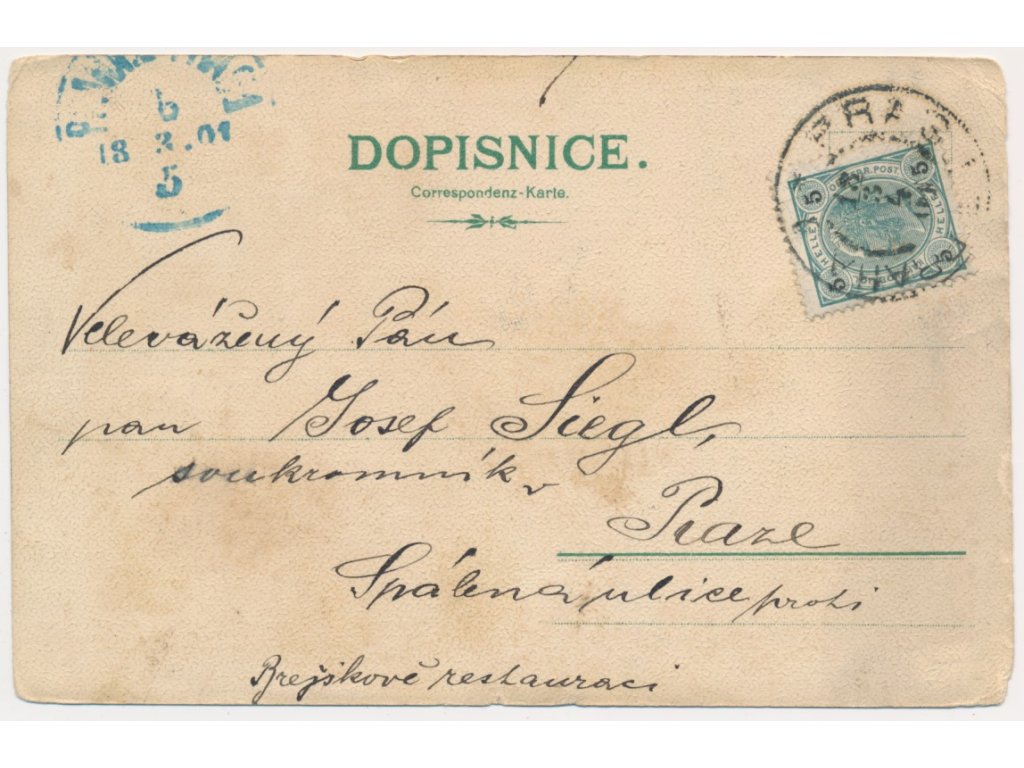 6
18 3.01
5
DOPISNICE.
Correspondenz-Karte.
PRAG
5 5
HELLER HELLER
5 5
Velevážený Pán
pan Josef Siegl,
soukromník v
Praze
Spálená ulice proti
Brejškově restauraci